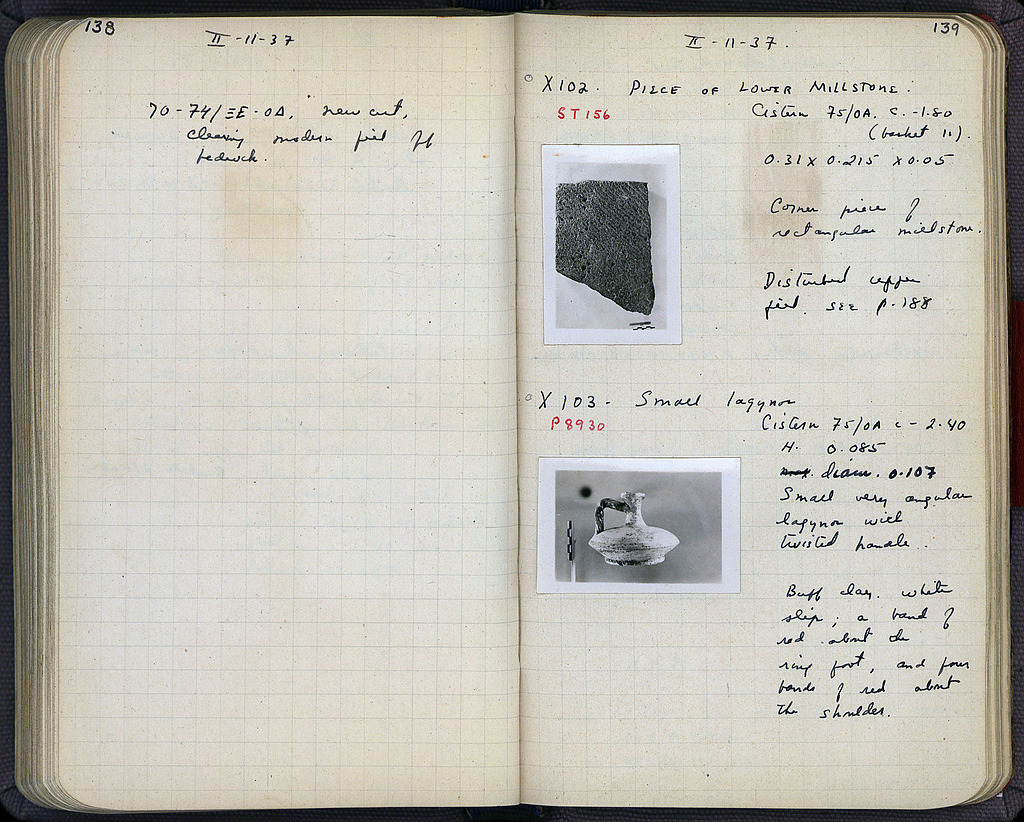 138
II - 11 - 37
70 - 74/ΞE - OΔ, new cut,
clearing modern fill off
bedrock.
139
II - 11 - 37.
X102. PIECE OF LOWER MILLSTONE.
ST 156
Cistern 75/OA. c. -1.80
(basket 11).
0.31 x 0.215 x 0.05
Corner piece of
rectangular millstone.
Disturbed upper
fill. SEE p. 188
X 103 - Small lagynos
P 8930
Cistern 75/OA c - 2.40
H. 0.085
max. diam. 0.107
Small very angular
lagynos with
twisted handle.
Buff clay. White
slip; a band of
red about the
ring foot, and four
bands of red about
the shoulder.